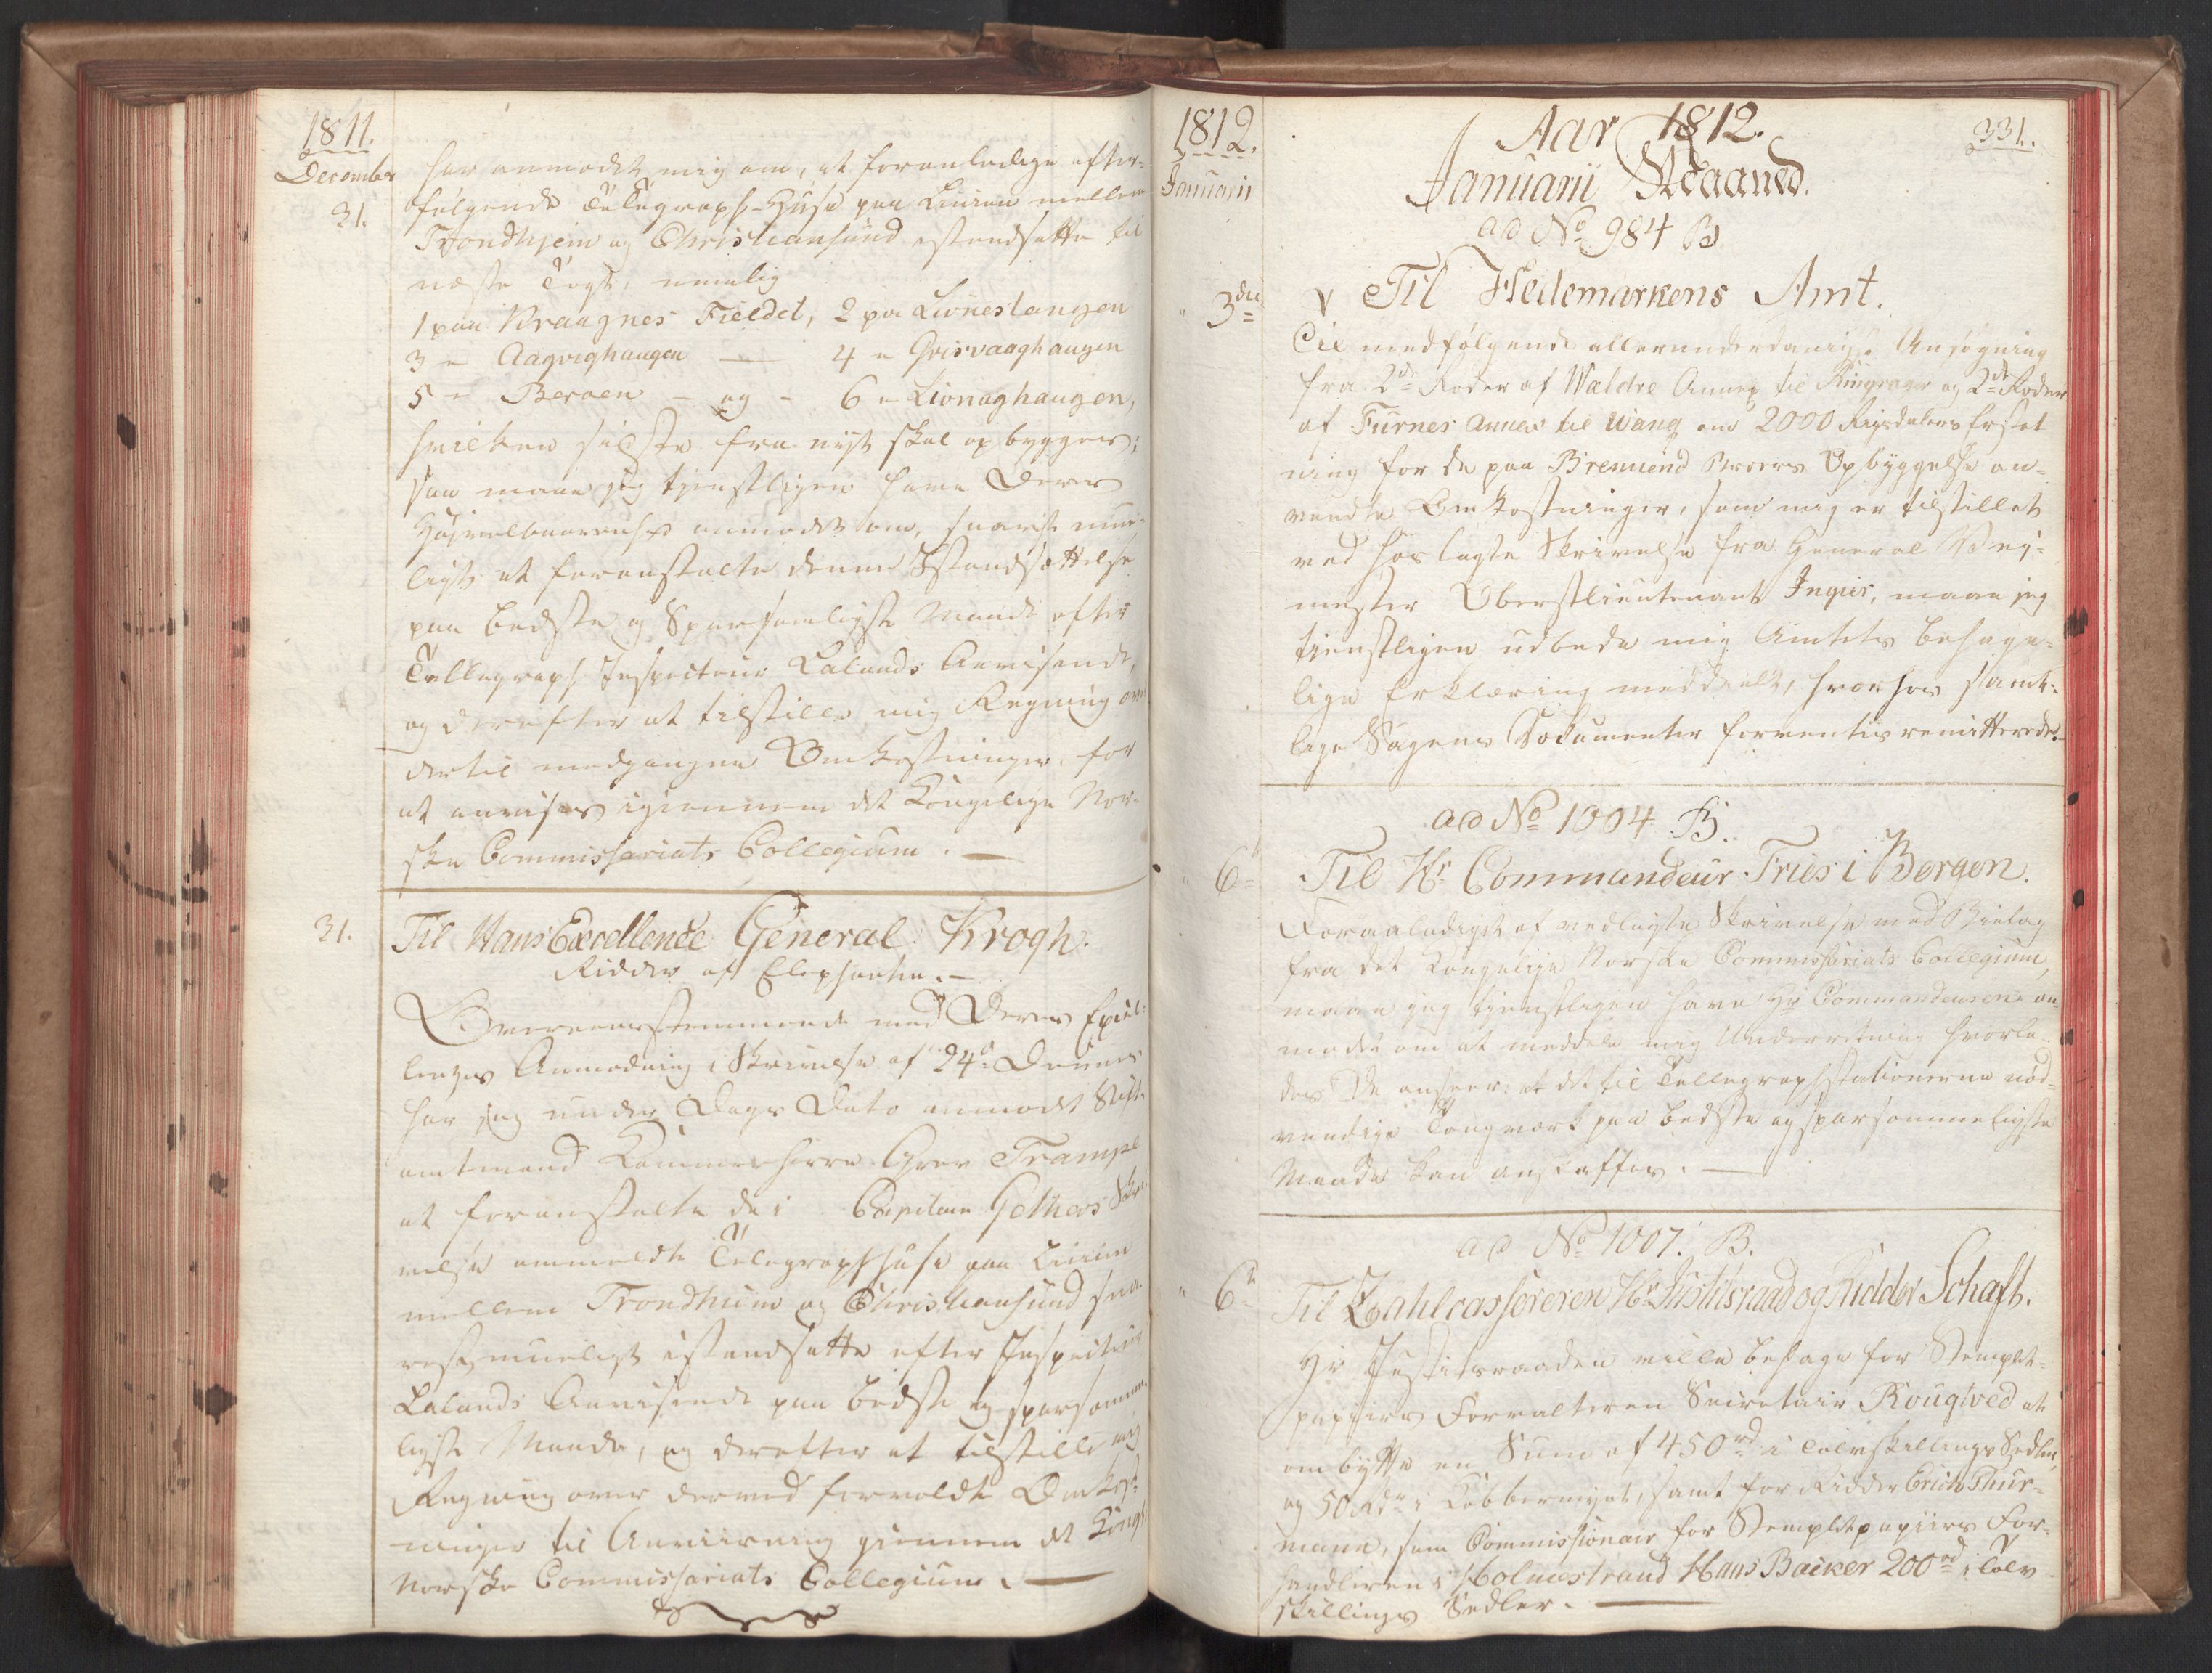 1811.
December
31.
har anmodet mig om, at foranledige efter-
følgende Telegraph-Huse paa Linien mellem
Trondhjem og Christiansund istandsatte til
næste Togt, nemlig
1 paa Kraagnes Fieldet, 2 paa Livnestangen
3 " Aagvighaugen — 4 " Grisvaaghaugen
5 " Beraen - og - 6 " Livnaghaugen,
hvilken sidste fra nyt skal opbygges;
saa maae jeg tienstligen have Deres
Høivelbaarenhed anmodet om, snarest mue-
ligt at foranstalte denne Istandsættelse
paa bedste og Sparsomligste Maade efter
Tellegraph Inspecteur Lalands Anvisende,
og derefter at tilstille mig Regning over
dertil medgangne Omkostninger, for
at anvises igiennem det Kongelige Nor-
ske Commissariats Collegium. —
31.
Til Hans Excellence General Krogh.
Ridder af Elephanten. —
Overeensstemmende med Deres Excel-
lences Anmodning i Skrivelse af 24de Dennes
har jeg under Dags Dato anmodet Stift-
amtmand Kammerherre Grev Trampe
at foranstalte de i Capitain Gethers Skri-
velse ommeldte Telegraphhuse paa Linien
mellem Trondhiem og Christiansund sna-
rest mueligt istandsatte efter Inspecteur
Lalands Anvisende paa bedste og sparsomme-
ligste Maade, og derefter at tilstille mig
Regning over derved forvoldte Omkost-
ninger til Anviisning giennem det Kongl
Norske Commissariats Collegium. —
1812.
Januarii
331.
Aar 1812.
Januarii Maaned.
ad No 984 B
3die
Til Hedemarkens Amt.
Til medfølgende allerunderdanigste Ansøgning
fra 2de Roder af Waldre Annex til Ringsager og 2de Roder
af Furnes Annex til Wang om 2000 Rigsdalers Erstat
ning for de paa Bremend Broers Opbyggelse an-
vendte Omkostninger, som mig er tilstillet
ved hoslagte Skrivelse fra General Vej-
mester Oberstlieutenant Ingier, maae jeg
tienstligen udbede mig Amtets behage-
lige Erklæring meddeelt, hvorhos samt-
lige Sagens Documenter forventes remitterede.
ad No 1004 B.
6te
Til Hr Commandeur Fries i Bergen.
Foranlediget af vedlagte Skrivelse med Bielag
fra det Kongelige Norske Commissariats Collegium,
maae jeg tienstligen have Hr Commandeuren an
modet om at meddele mig Underretning hvorle-
des De anseer at det til Tellegraphstationerne nød-
vendige Tougværk paa bedste og sparsommeligste
Maade kan anskaffes. —
ad No 1007. B.
6te
Til Zahlcassereren Hr Justitsraad og Ridder Schaft.
Hr Justitsraaden ville behage for Stemplet-
papiirs Forvalteren Secretair Rougtved at
ombytte en Sum af 450 rd i Tolvskillings Sedler,
og 50 Rdr i Kobbermynt, samt for Ridder Erich Thur-
mann, som Commissionair for Stempletpapiirs For-
handleren i Holmestrand Hans Backer 200 rd i Tolv
skillings Sedler. —